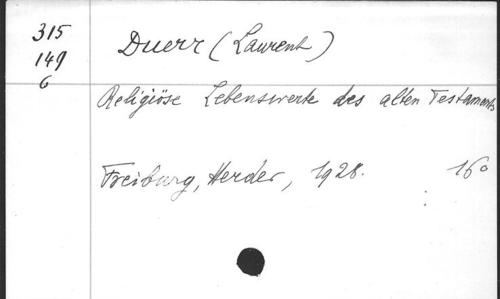 315
149
6
Duerr (Laurent)
Religiöse Lebenswerte des alten Testaments
Freiburg, Herder, 1928. 16°